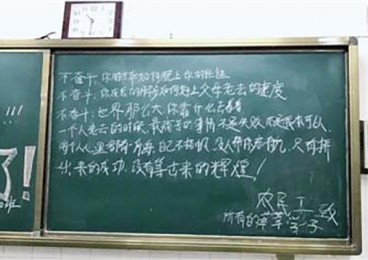 不奋斗，你的才华如何配上你的任性
不奋斗，你成长的脚步如何赶上父母老去的速度
不奋斗，世界那么大，你靠什么去看看
一个人老去的时候，最痛苦的事情，不是失败，而是我本可以
每个人心里都有一片海，自己不扬帆，没人帮你启航，只有拼
出来的成功，没有等出来的辉煌！
农民工 致
所有的莘莘学子
!!!
了！